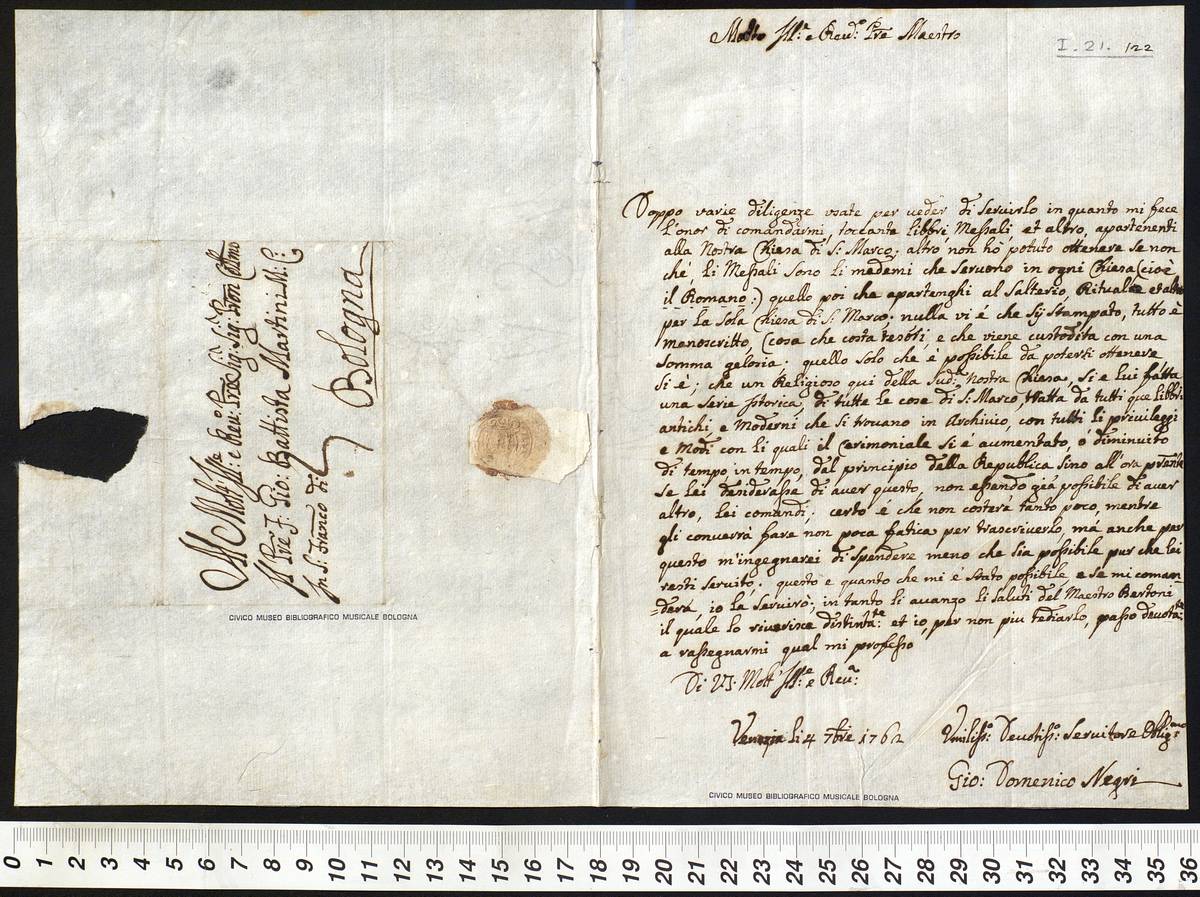 Al Molt' Ill:e e Rev:o Pre Sig: Sig: Pron Collmo
Il Pre F. Gio: Battista Martini M: C:
In S: Franco di
Bologna
CIVICO MUSEO BIBLIOGRAFICO MUSICALE BOLOGNA
Molto Ill:e e Rev:o Pre Maestro
I. 21. 122
Doppo varie diligenze usate per veder di servirlo in quanto mi fece
l'onor di comandarmi, toccante libbri Messali et altro, apartenenti
alla Nostra Chiesa di S: Marco; altro non hò potuto ottenere se non
ché, li Messali sono li medemi che servono in ogni Chiesa (cioè
il Romano:) quello poi che apartenghi al Salterio, Rituale et altro
per la sola Chiesa di S: Marco; nulla vi é che sij stampato, tutto è
menoscritto, (cosa che costa tesori, e che viene custodita con una
somma gelosia; quello solo che é possibile da potersi ottenere,
si é; che un Religioso qui della sud:a Nostra Chiesa, si e lui fatta
una serie storica, di tutte le cose di S: Marco, tratta da tutti que libbri
antichi, e Moderni che si trovano in Archivio, con tutti li previleggi
e Modi con li quali il Cerimoniale si é aumentato, ó diminuito
di tempo in tempo, dal principio dalla Republica sino all'ora prante
se lei desiderasse di aver questo, non essendo già possibile di aver
altro, lei comandi; certo é che non costerá tanto poco, mentre
gli converrà fare non poca fatica per trascriverlo, má anche per
questo m'ingegnarei di spendere meno che sia possibile pur che lei
resti servito; questo e quanto che mi é stato possibile e se mi coman=
=derá, io la servirò; in tanto li avanzo li saluti del Maestro Bertoni
il quale lo riverisce distinta:te et io, per non piu tediarlo, passo devota:te
a rassegnarmi qual mi professo
Di V.S. Molt' Ill:e e Rev:a
Venezia li 4 7bre 1762
Umiliss:o Devotiss:o Servitore Obblig:mo
Gio: Domenico Negri
CIVICO MUSEO BIBLIOGRAFICO MUSICALE BOLOGNA
0 1 2 3 4 5 6 7 8 9 10 11 12 13 14 15 16 17 18 19 20 21 22 23 24 25 26 27 28 29 30 31 32 33 34 35 36